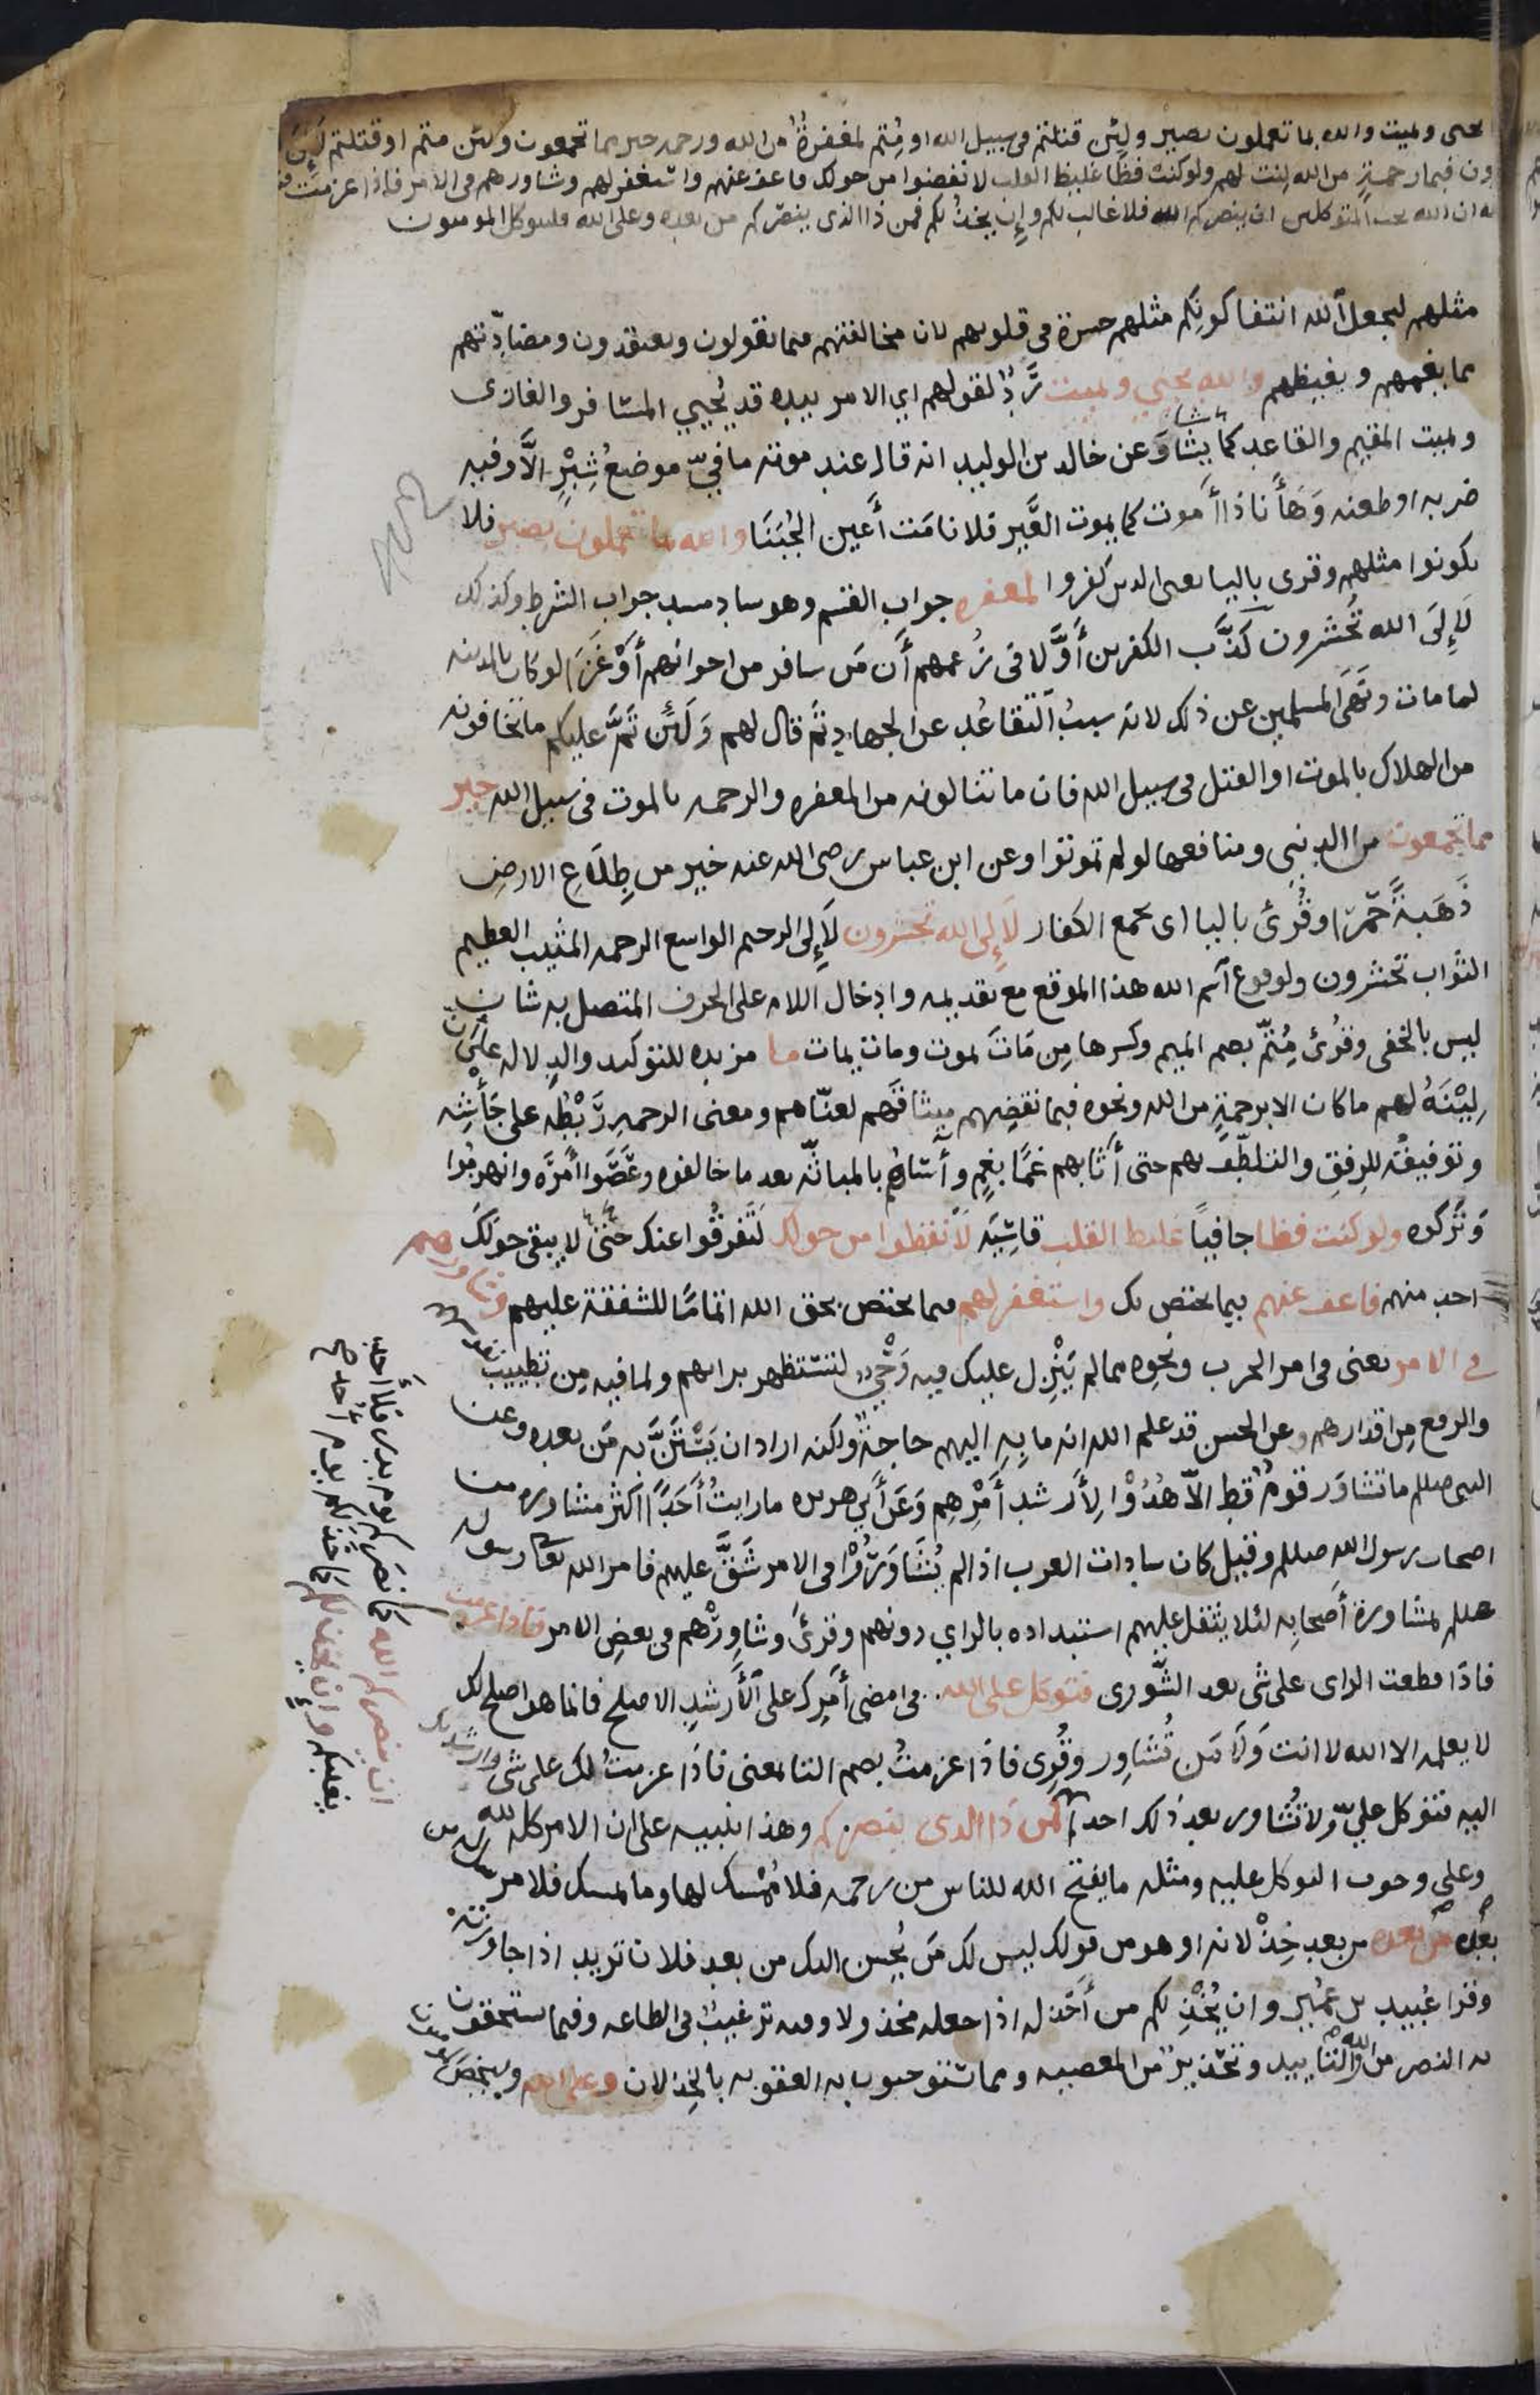 يحيى ويميت والله بما تعملون بصير ولئن قتلتم في سبيل الله او مُتم لمغفرةٌ من الله ورحمه خير مما تجمعون ولئن متم او قتلتم لَإِلَى
ون فبما رحمةٍ من الله لِنت لهم ولو كنت فظًا غليظ القلب لانفضوا من حولك فاعف عنهم واستغفر لهم وشاورهم في الامر فاذا عزمت
ان الله يحب المتوكلين ان ينصركم الله فلا غالب لكم وإن يخذلكم فمن ذا الذي ينصركم من بعده وعلى الله فليتوكل المومنون
مثلهم ليجعل الله انتفا كونِكم مثلهم حسرة في قلوبهم لان مخالفتهم فيما يقولون ويعتقدون ومضادّتهم
مما يغمهم ويغيظهم والله يحيي ويميت رَدٌّ لقولهم اي الامر بيده قد يُحيي المسافر والغازى
ويميت المقيم والقاعد كما يشا وعن خالد بن الوليد انه قال عند موته ما فيّ موضعُ شِبْرٍ الَّا وفيه
ضربه او طعنه وَهَأناذا أموت كما يموت العَير فلا نامَت أعين الجُبَنَا والله بما تعملون بصير فلا
تكونوا مثلهم وقرى باليا يعنى الدين كفروا لمغفره جواب القسم وهو ساد مسد جواب الشرط وكذلك
لَإِلَى الله تُحشرون كَذَّب الكفرين أوَّلا في زُعمهم أن مَن سافر من اخوانهم أوْ غَزَا لو كان بالمدينه
لما مات ونَهَى المسلمين عن ذلك لانه سببُ التقاعُد عن الجهاد ثم قال لهم وَلَئن تَمَّ عليكم ما تخافونه
من الهلاك بالموت او القتل في سبيل الله فان ما تنالونه من المغفره والرحمه بالموت في سبيل الله خير
مما تجمعون من الدنيى ومنافعها لو لم تموتوا وعن ابن عباس رضى الله عنه خير من طِلَاعِ الارض
ذَهَبةً حَمرا وقُرئ باليا اى يجمع الكفار لَإِلى الله تحشرون لَإِلى الرحيم الواسع الرحمه المثيب العظيم
الثواب تحشرون ولوقوع اسم الله هذا الموقع مع تقديمه وادخال اللام على الحرف المتصل به شان
ليس بالخفى وقُرئ مُتم بضم الميم وكسرها مِن مَات يموت ومات يمات ما مزيده للتوكيد والدلاله على أن
لِيْنَهُ لهم ما كان الا برحمةٍ من الله ونحوه فبما نقضِهم ميثاقَهم لعنّاهم ومعنى الرحمه رَبْطُه على جَأشِه
وتوفيقُه للرفق والتلطّف بهم حتى أثابهم غمًا بغمٍ وآساهُم بالمباثّه بعد ما خالفوه وعَصَوا أمرَه وانهزموا
وَتركوه ولو كنت فظا جافيًا غليظ القلب قاسِيَه لانفظوا من حولك لَتَفرقُوا عنك حتى لا يبقى حولكَ
احد منهم فاعف عنهم فيما يختص بك واستغفر لهم فيما يختص بحق الله اتمامًا للشفقة عليهم وشاورهم
في الامر يعنى في امر الحرب ونحوِه مما لم يَنْزل عليك فيه وَحْيٌ لتستظهر برايهم ولما فيه مِن تطييب نفوسهم
والرفع مِن اقدارهم وعن الحسن قد علم الله انه ما بِهِ اليهم حاجةٌ ولكنه اراد ان يَسْتَنَّ به مَن بعده وعن
النبي صللم ما تشاوَر قومٌ قط الّا هُدُوْا لِأرشد أمْرِهِم وعَن أبي هريره ما رايتُ أحَدًا اكثر مشاوره من
اصحاب رسول الله صللم وقيل كان سادات العرب اذا لم يُشَاوَرُوْا في الامر شَقَّ عليهم فامر الله تعالى رسوله
صللم بمشاورة أصحابِه لئلا يثقل عليهم استبداده بالراي دونهم وقرئَ وشاوِرْهم في بعضِ الامر فاذا عزمت
فاذا قطعت الراى على شى بعد الشّورى فتوكل على الله في امضى أمرِك على الأرشدِ الاصلح فان ما هو اصلح لك
لا يعلمه الا الله لا انت وَلَا مَن تُشاوِر وقُرِى فاذا عزمتُ بضم التا بمعنى فاذا عزمتُ لك على شى وارشدتك
اليه فتوكل عليّ ولا تُشاور بعد ذلك احدا فمن ذا الذى ينصركم وهذا تنبيه على ان الامر كله لله
وعلى وجوب التوكل عليه ومثله ما يفتح الله للناس من رحمه فلا مُمْسك لها وما يمسك فلا مرسل له من
بعده من بعده من بعد خِذْلانه او هو من قولك ليس لك مَن يُحسن اليك من بعد فلان تريد اذا جاوزته
وقرا عُبيد بن عُمَيرٍ وان يُخْذِلكم من أخذله اذا جعله مخذولا وفيه ترغيبٌ في الطاعه وفيما يستحقون
به النصر من الله والتأييد وتحذيرٌ من المعصيه ومما تستوجبون به العقوبه بالخِذلان وعلى الله وليخصَّ
ان ينصركم الله كما نصركم يوم بدر فلا أحد
يغلبكم وإن يخذلكم كما خذلكم يوم أُحد